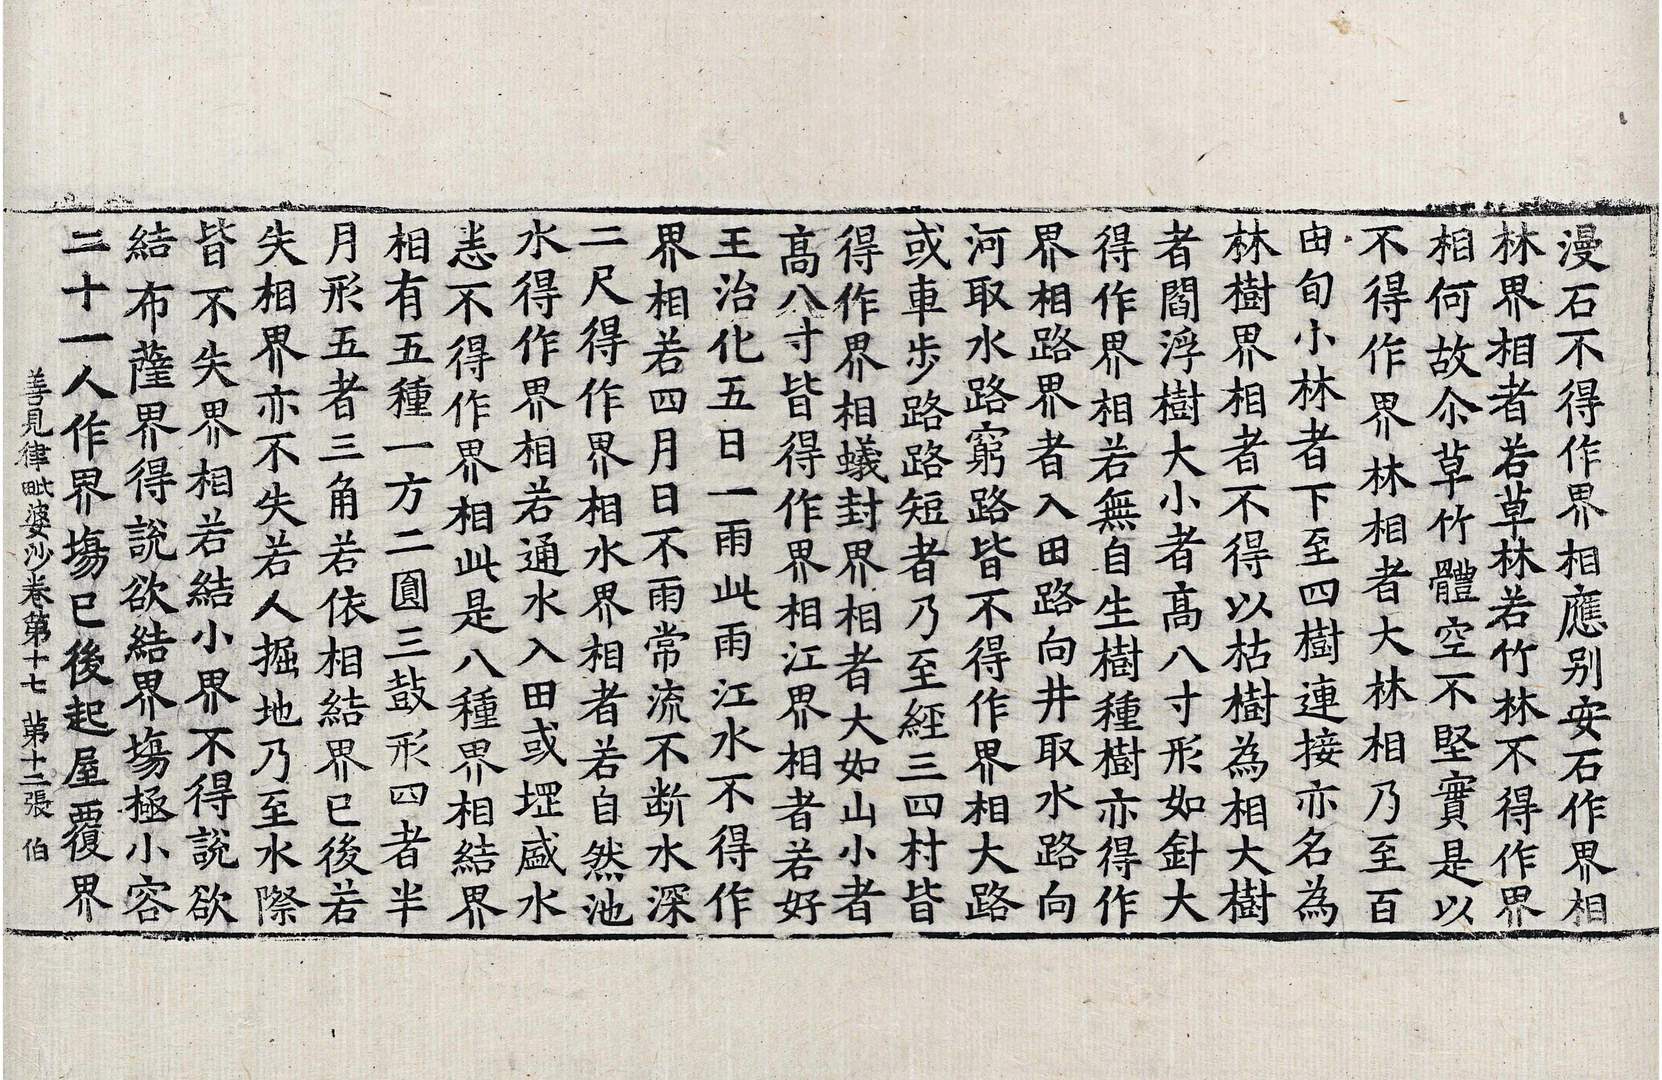 漫石不得作界相應別安石作界相
林界相者若草林若竹林不得作界
相何故尒草竹體空不堅實是以
不得作界林相者大林相乃至百
由旬小林者下至四樹連接亦名為
林樹界相者不得以枯樹為相大樹
者閻浮樹大小者高八寸形如針大
得作界相若無自生樹種樹亦得作
界相路界者入田路向井取水路向
河取水路窮路皆不得作界相大路
或車步路路短者乃至經三四村皆
得作界相蟻封界相者大如山小者
高八寸皆得作界相江界相者若好
王治化五日一雨此雨江水不得作
界相若四月日不雨常流不断水深
二尺得作界相水界相者若自然池
水得作界相若通水入田或堽盛水
恙不得作界相此是八種界相結界
相有五種一方二圓三鼓形四者半
月形五者三角若依相結界已後若
失相界亦不失若人掘地乃至水際
皆不失界相若結小界不得說欲
結布薩界得說欲結界塲極小容
二十一人作界塲已後起屋覆界
善見律毗婆沙卷第十七 第十二張 伯